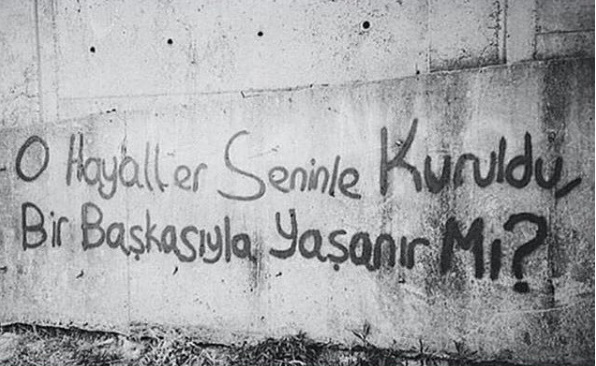 O Hayaller Seninle Kuruldu,
Bir Başkasıyla Yaşanır Mı?